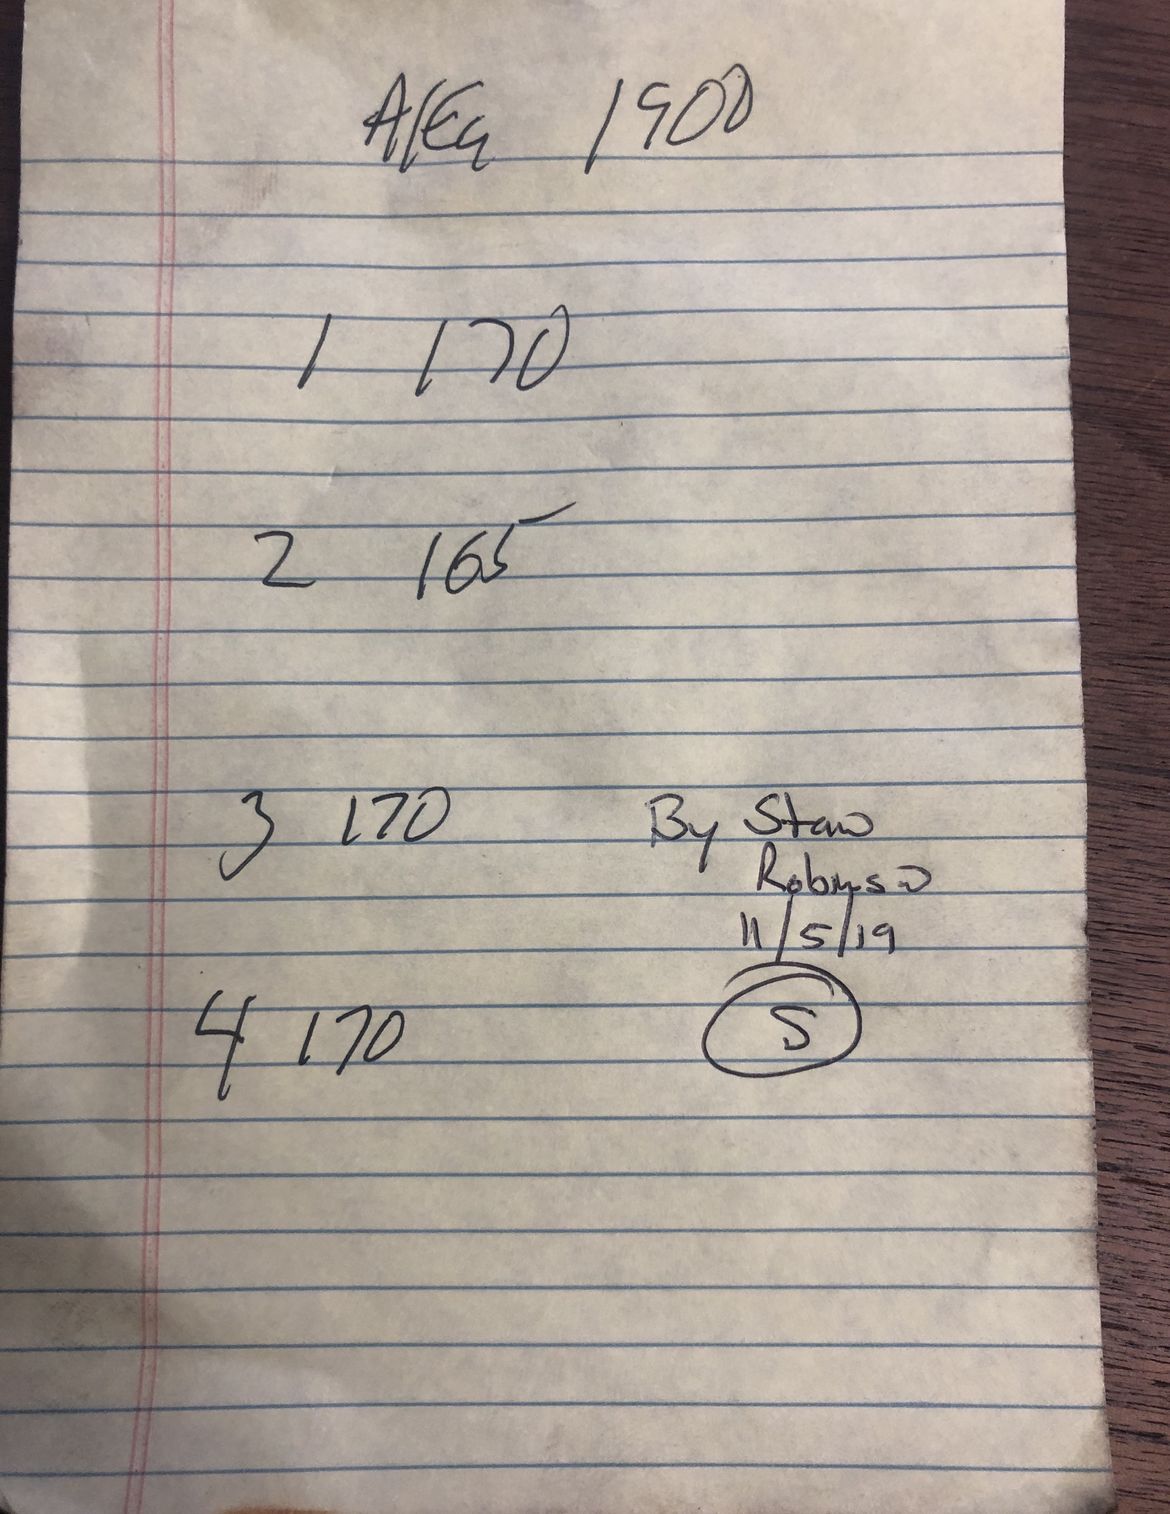 1900
1 170
2 165
3 170
By Stan
Robinson
11/5/19
4 170
S